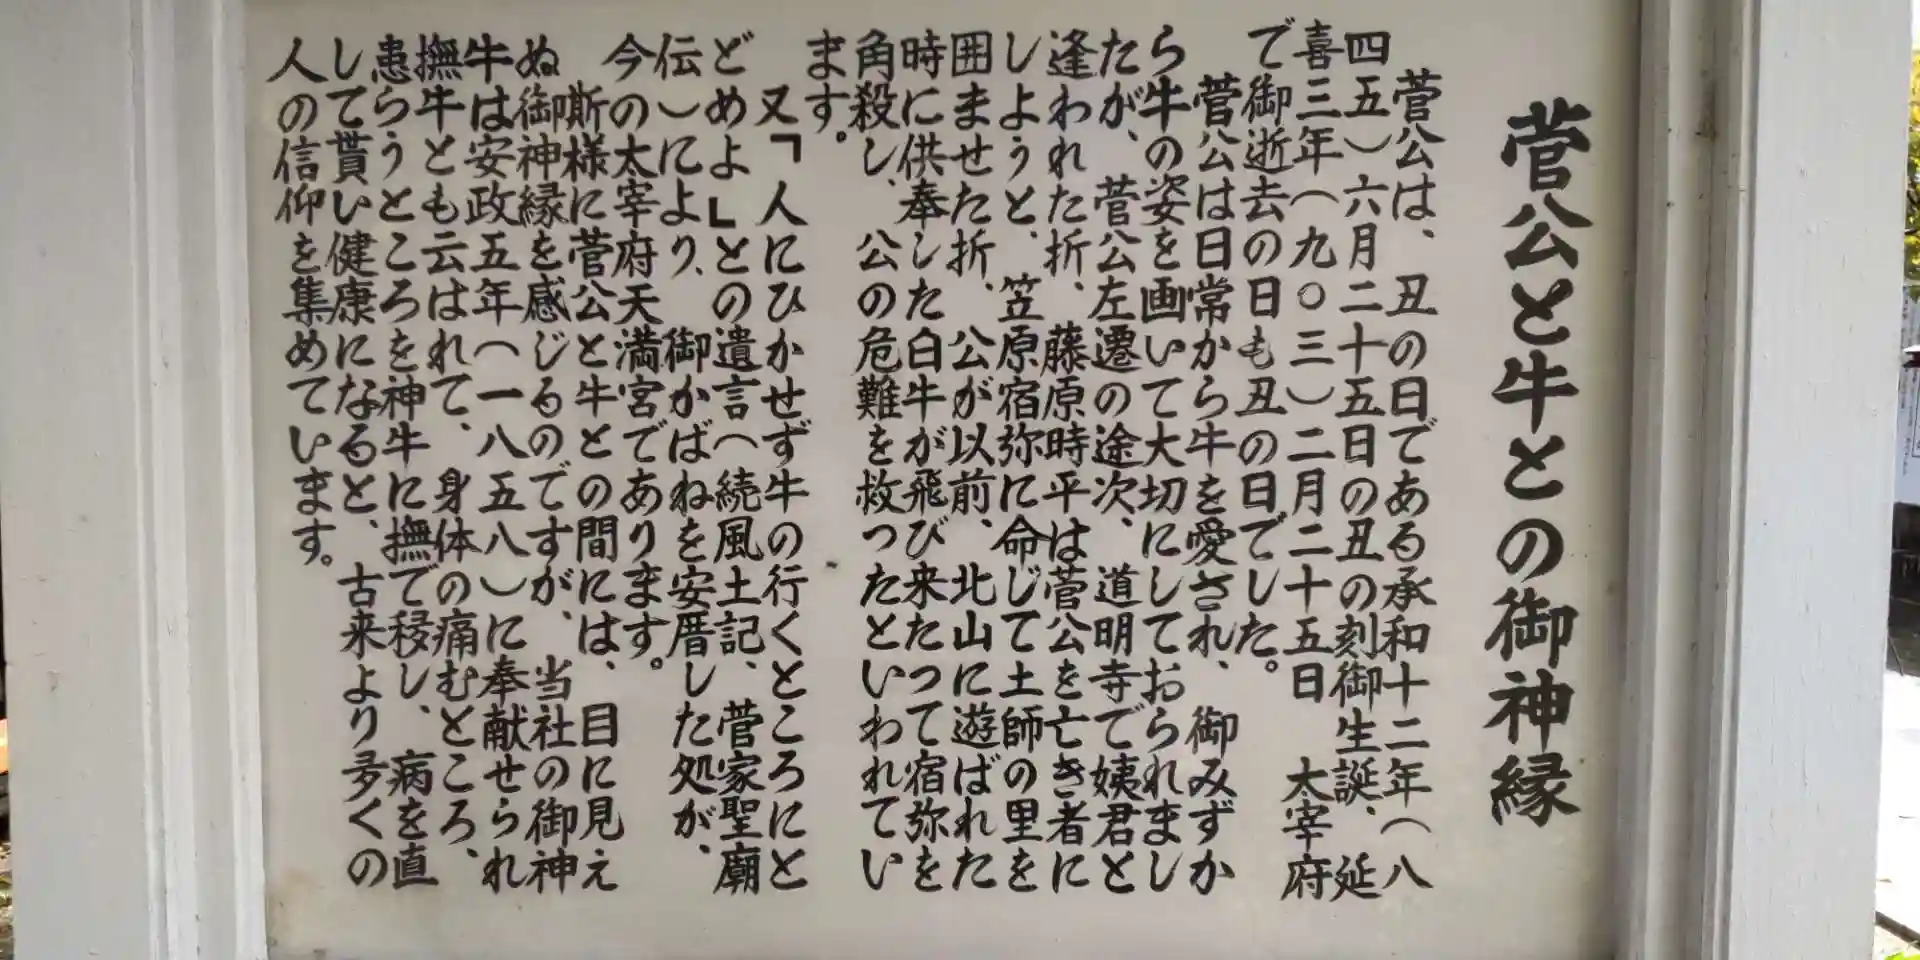 菅公と牛との御神縁
菅公は、丑の日である承和十二年（八
四五）六月二十五日の丑の刻御生誕、延
喜三年（九〇三）二月二十五日 太宰府
で御逝去の日も丑の日でした。
菅公は日常から牛を愛され、御みずか
ら牛の姿を画いて大切にしておられまし
たが、菅公左遷の途次、道明寺で姨君と
逢われた折、藤原時平は菅公を亡き者に
しようと、笠原宿弥に命じて土師の里を
囲ませた折、公が以前、北山に遊ばれた
時に供奉した白牛が飛び来たつて宿弥を
角殺し、公の危難を救ったといわれてい
ます。
又「人にひかせず牛の行くところにと
どめよ」との遺言（続風土記、菅家聖廟
伝）により、御かばねを安厝した処が、
今の太宰府天満宮であります。
斯様に菅公と牛との間には、目に見え
ぬ御神縁を感じるのですが、当社の御神
牛は安政五年（一八五八）に奉献せられ
撫牛とも云はれて、身体の痛むところ、
患らうところを神牛に撫で移し、病を直
して貰い健康になると、古来より多くの
人の信仰を集めています。